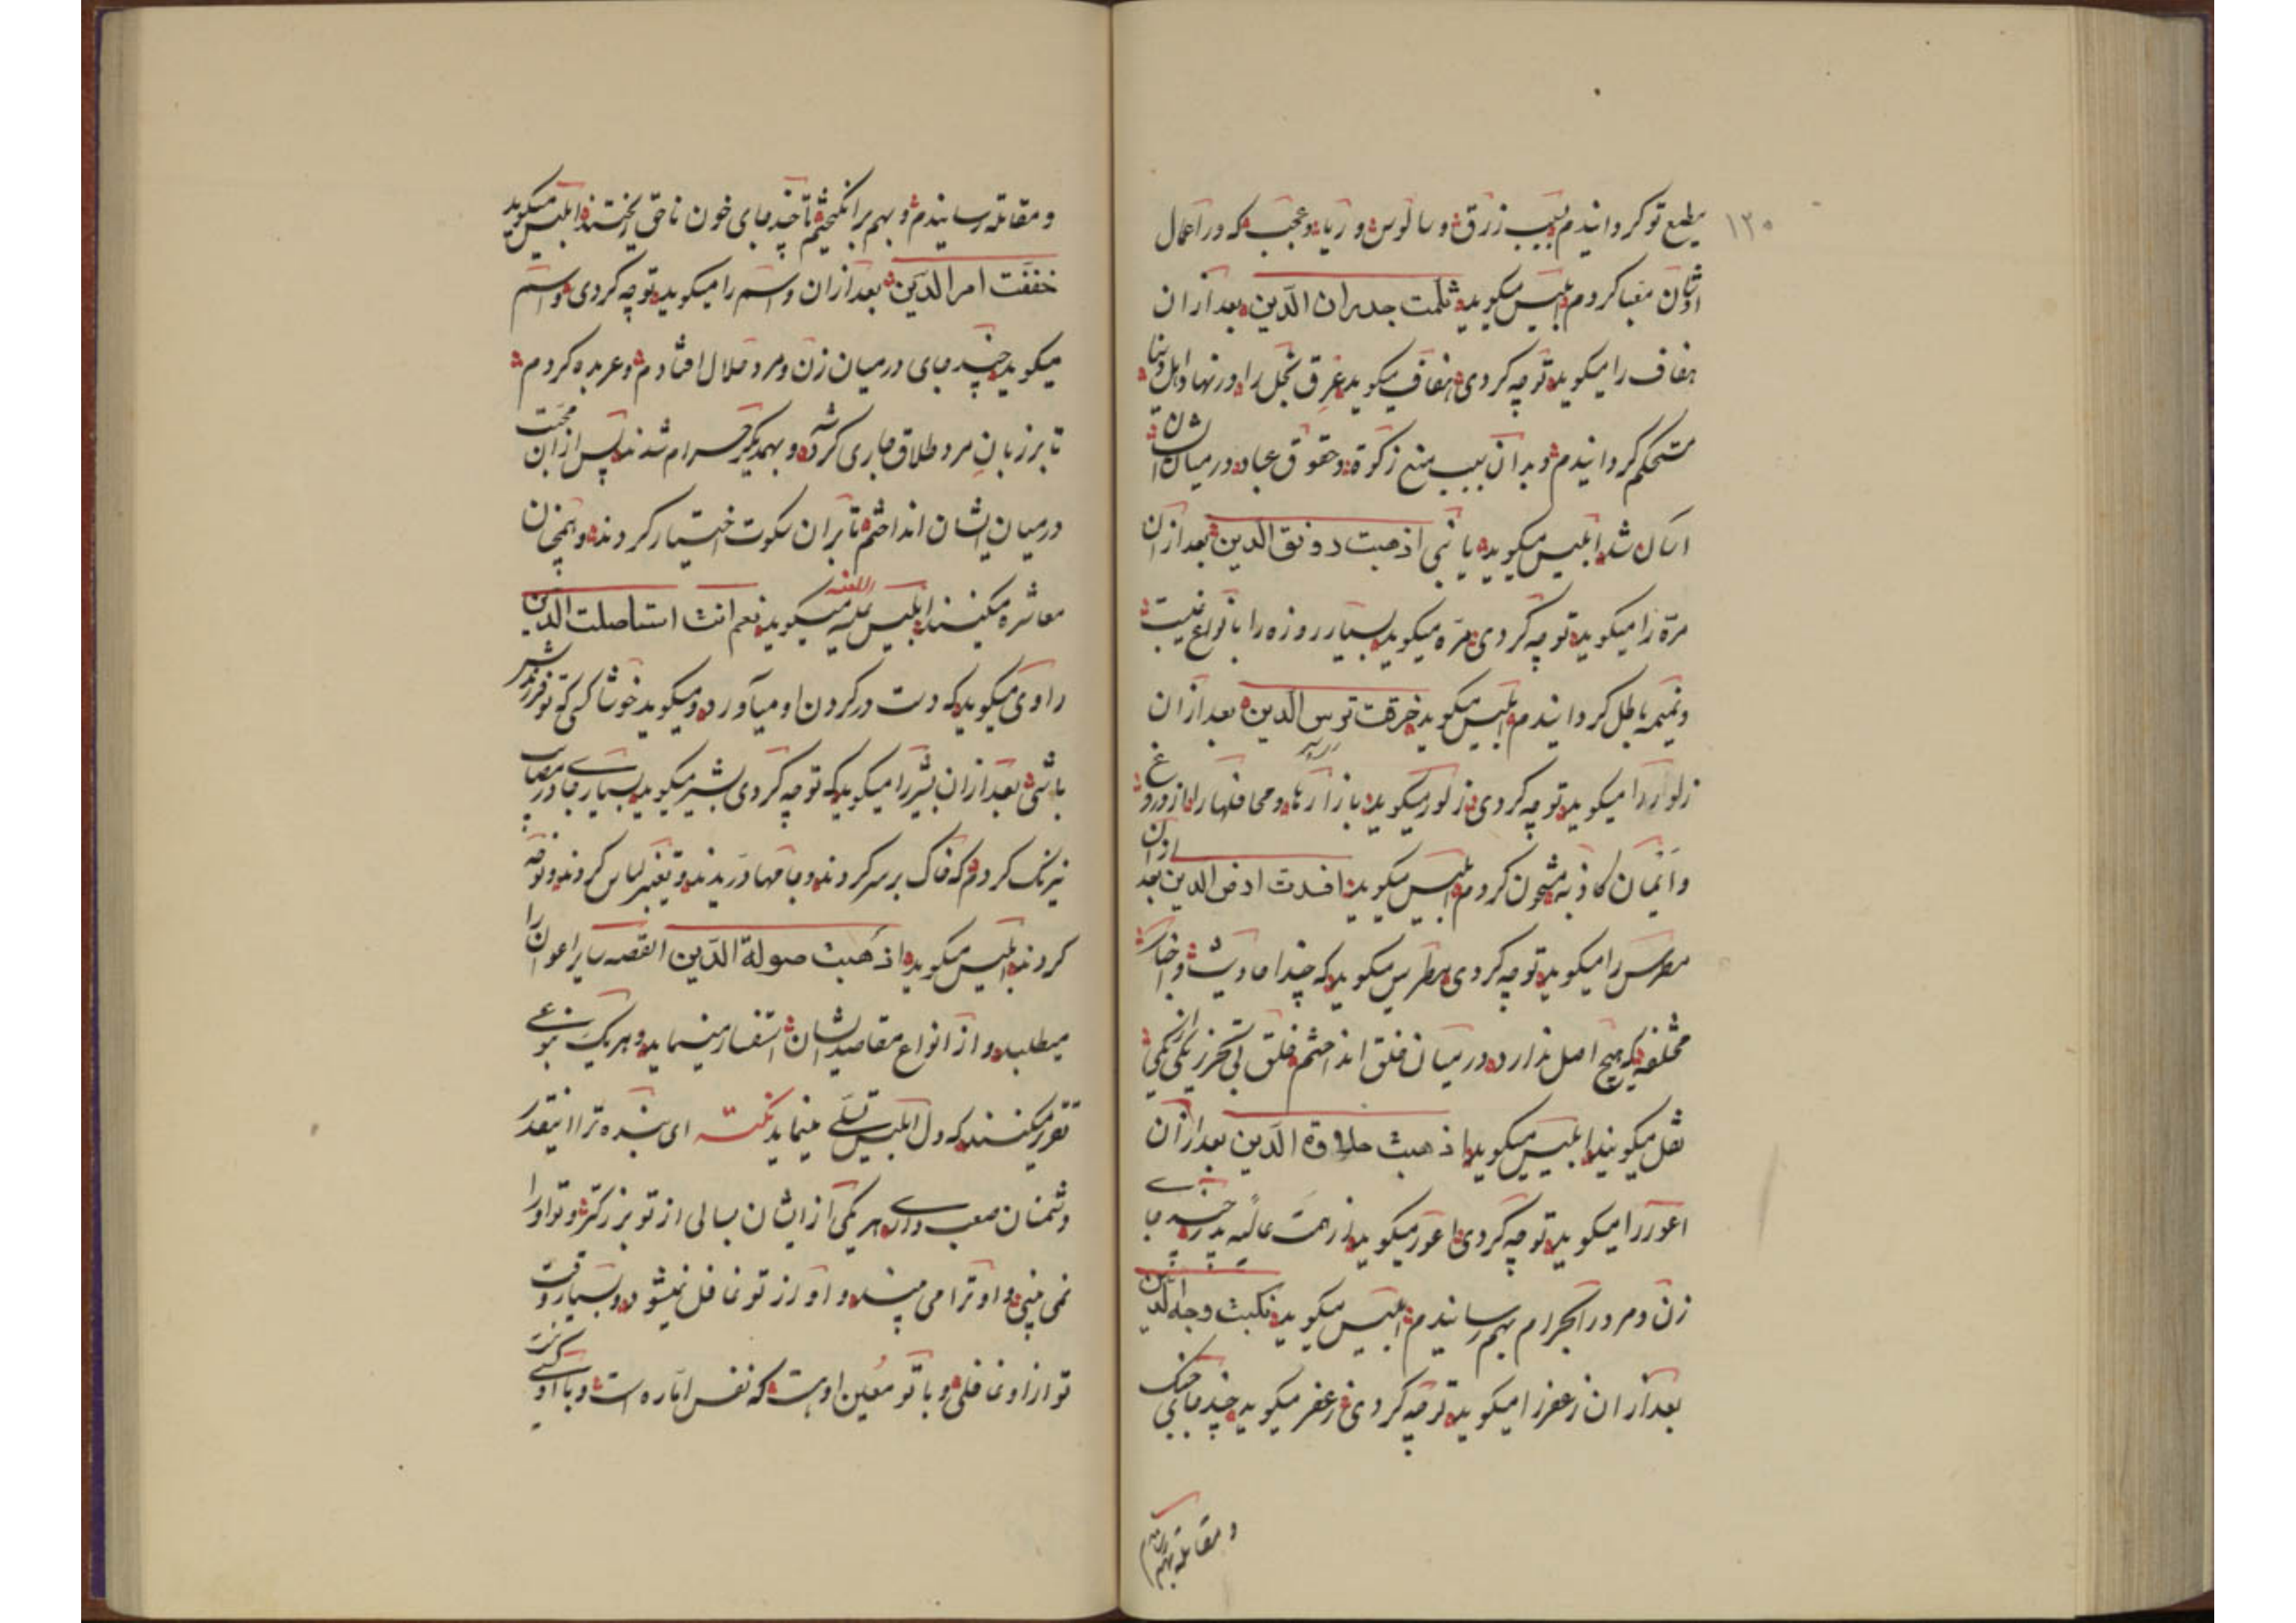 ۱۲۰
مطیع تو کردانیدم بسبب زرق و سالوس و ریا و عجب که در اعمال
ایشان مهیا کردم ابلیس میکوید ثلمت جدران الدّین بعد از ان
هفاف را میکوید تو چه کردی هفاف میکوید عرق بخل را در نهاد اهل دنیا
مستحکم کردانیدم و بدان سبب منع زکوة و حقوق عباد در میان ایشان
اسان شد ابلیس میکوید یا بنی اذهبت رونق الدین بعد از ان
مرّه را میکوید تو چه کردی مرّه میکوید بسیار روزه را بانواع غیبت
و نمیمه باطل کردانیدم ابلیس میکوید خرقت ترس الدین بعد از ان
زلنور را میکوید تو چه کردی زلنور میکوید بازارها و محافلها را از دروغ
و اَیمان کاذبه مشحون کردم ابلیس میکوید افسدت ارض الدین بعد از ان
مطرس را میکوید تو چه کردی مطرس میکوید که چند احادیث و اخبار
مختلفه که هیچ اصل ندارد در میان خلق انداختم خلق بی تحرز یکی از یکی
نقل میکویند ابلیس میکوید اذهبت حلاوة الدّین بعد از ان
اعور را میکوید تو چه کردی اعور میکوید از همت عالیه پدر چند جای
زن و مرد را بحرام بهم رسانیدم ابلیس میکوید نکبت وجه الدین
بعد از ان زعفر را میکوید تو چه کردی زعفر میکوید چند جای جنک
و مقاتله بهم رسانیدم
و مقاتله رسانیدم و بهم برانکیختم تا چند جای خون ناحق ریختند ابلیس میکوید
خففت امر الدّین بعد از ان واسم را میکوید تو چه کردی واسم
میکوید چند جای در میان زن و مرد ملال افتادم و عربده کردم
تا بر زبان مرد طلاق جاری کرشد و بهمدیکر حرام شدند پس از ان محبت
در میان ایشان انداختم تا بران سکوت اختیار کردند و همچنان
معاشره میکنند ابلیس علیه اللعنه میکوید نعم انت استاصلت الدّین
راوی میکوید که دست در کردن او میآورد و میکوید خوشا کسی که تو فرزندش
باشی بعد از ان بثر را میکوید که تو چه کردی بثر میکوید بسیار جای در مصایب
نیرنک کردم که خاک بر سر کردند و جامها دریدند و تغییر لباس کردند و نوحه
کردند ابلیس میکوید اذهبت صولة الدّین القصه سایر اعوان را
میطلبد و از انواع مقاصد ایشان استفسار مینماید و هر یک بنوعی
تقریر میکنند که دل ابلیس تسلی مینماید نکته ای بنده ترا اینقدر
دشمنان صعب داری هر یکی از ایشان بسالی از تو بزرکتر و تو او را
نمی بینی و او ترا می بیند و او از تو غافل نمیشود و بسیار وقت
تو از او غافلی و با تو معین او هست که نفس اماره است و با او کسی نیست